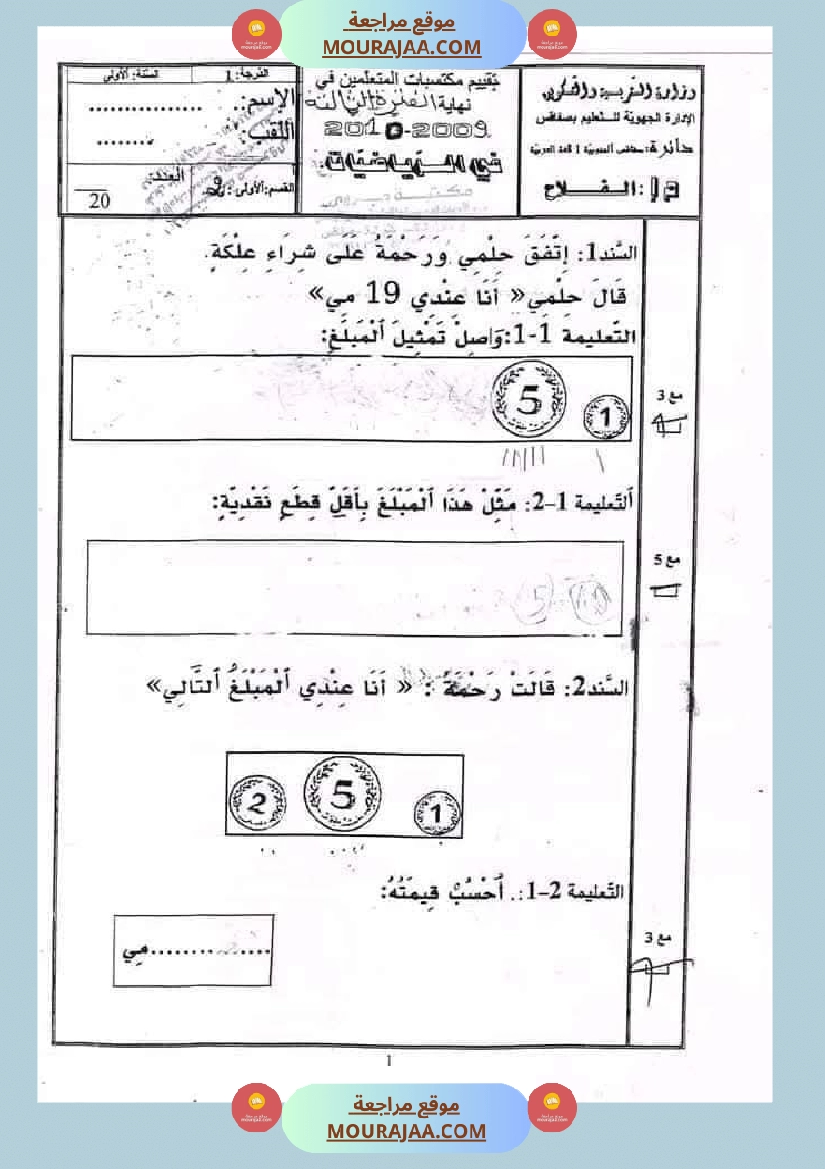 موقع مراجعة
MOURAJAA.COM
وزارة التربية والتكوين
الإدارة الجهوية للتعليم بصفاقس
دائرة:
م إ: الفلاح
تقييم مكتسبات المتعلمين في
نهاية الفترة الثالثة
2010-2009
في الرياضيات:
الدرجة: 1
السنة: الأولى
الإسم: ..................
اللقب: .........
القسم: الأولى:
العدد:
20
السّند1: إِتَّفَقَ حِلْمِي وَرَحْمَةُ عَلَى شِرَاءِ عِلْكَةٍ.
قَالَ حِلْمِي« أَنَا عِنْدِي 19 مي»
التّعليمة 1-1:وَاصِلْ تَمْثِيلَ ٱلْمَبْلَغِ:
5 1
مع 3
ٱلتّعليمة 1-2: مَثِّلْ هَذَا ٱلْمَبْلَغَ بِأَقَلِّ قِطَعٍ نَقْدِيَّةٍ:
مع 5
السَّند2: قَالَتْ رَحْمَةُ : « أَنَا عِنْدِي ٱلْمَبْلَغُ ٱلتَّالِي»
2 5 1
التّعليمة 2-1:. ٱحْسُبْ قِيمَتَهُ:
مع 3
...............مِي
1
موقع مراجعة
MOURAJAA.COM